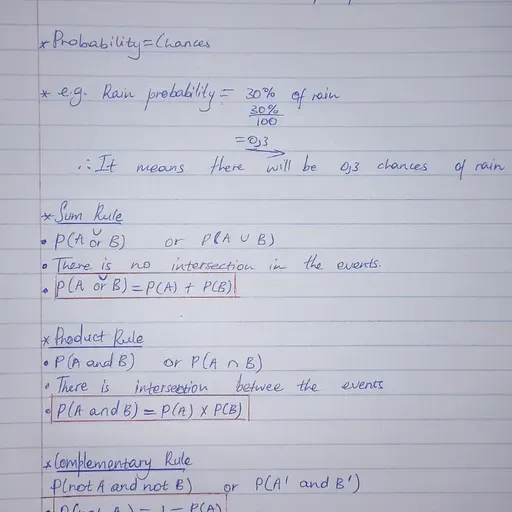 * Probability = Chances
* e.g. Rain probability = 30% of rain
30%
100
= 0,3
∴ It means there will be 0,3 chances of rain
* Sum Rule
• P(A or B) or P(A ∪ B)
• There is no intersection in the events.
• P(A or B) = P(A) + P(B)
* Product Rule
• P(A and B) or P(A ∩ B)
• There is intersection betwee the events
• P(A and B) = P(A) × P(B)
* Complementary Rule
P(not A and not B) or P(A' and B')
• P(not A) = 1 - P(A)